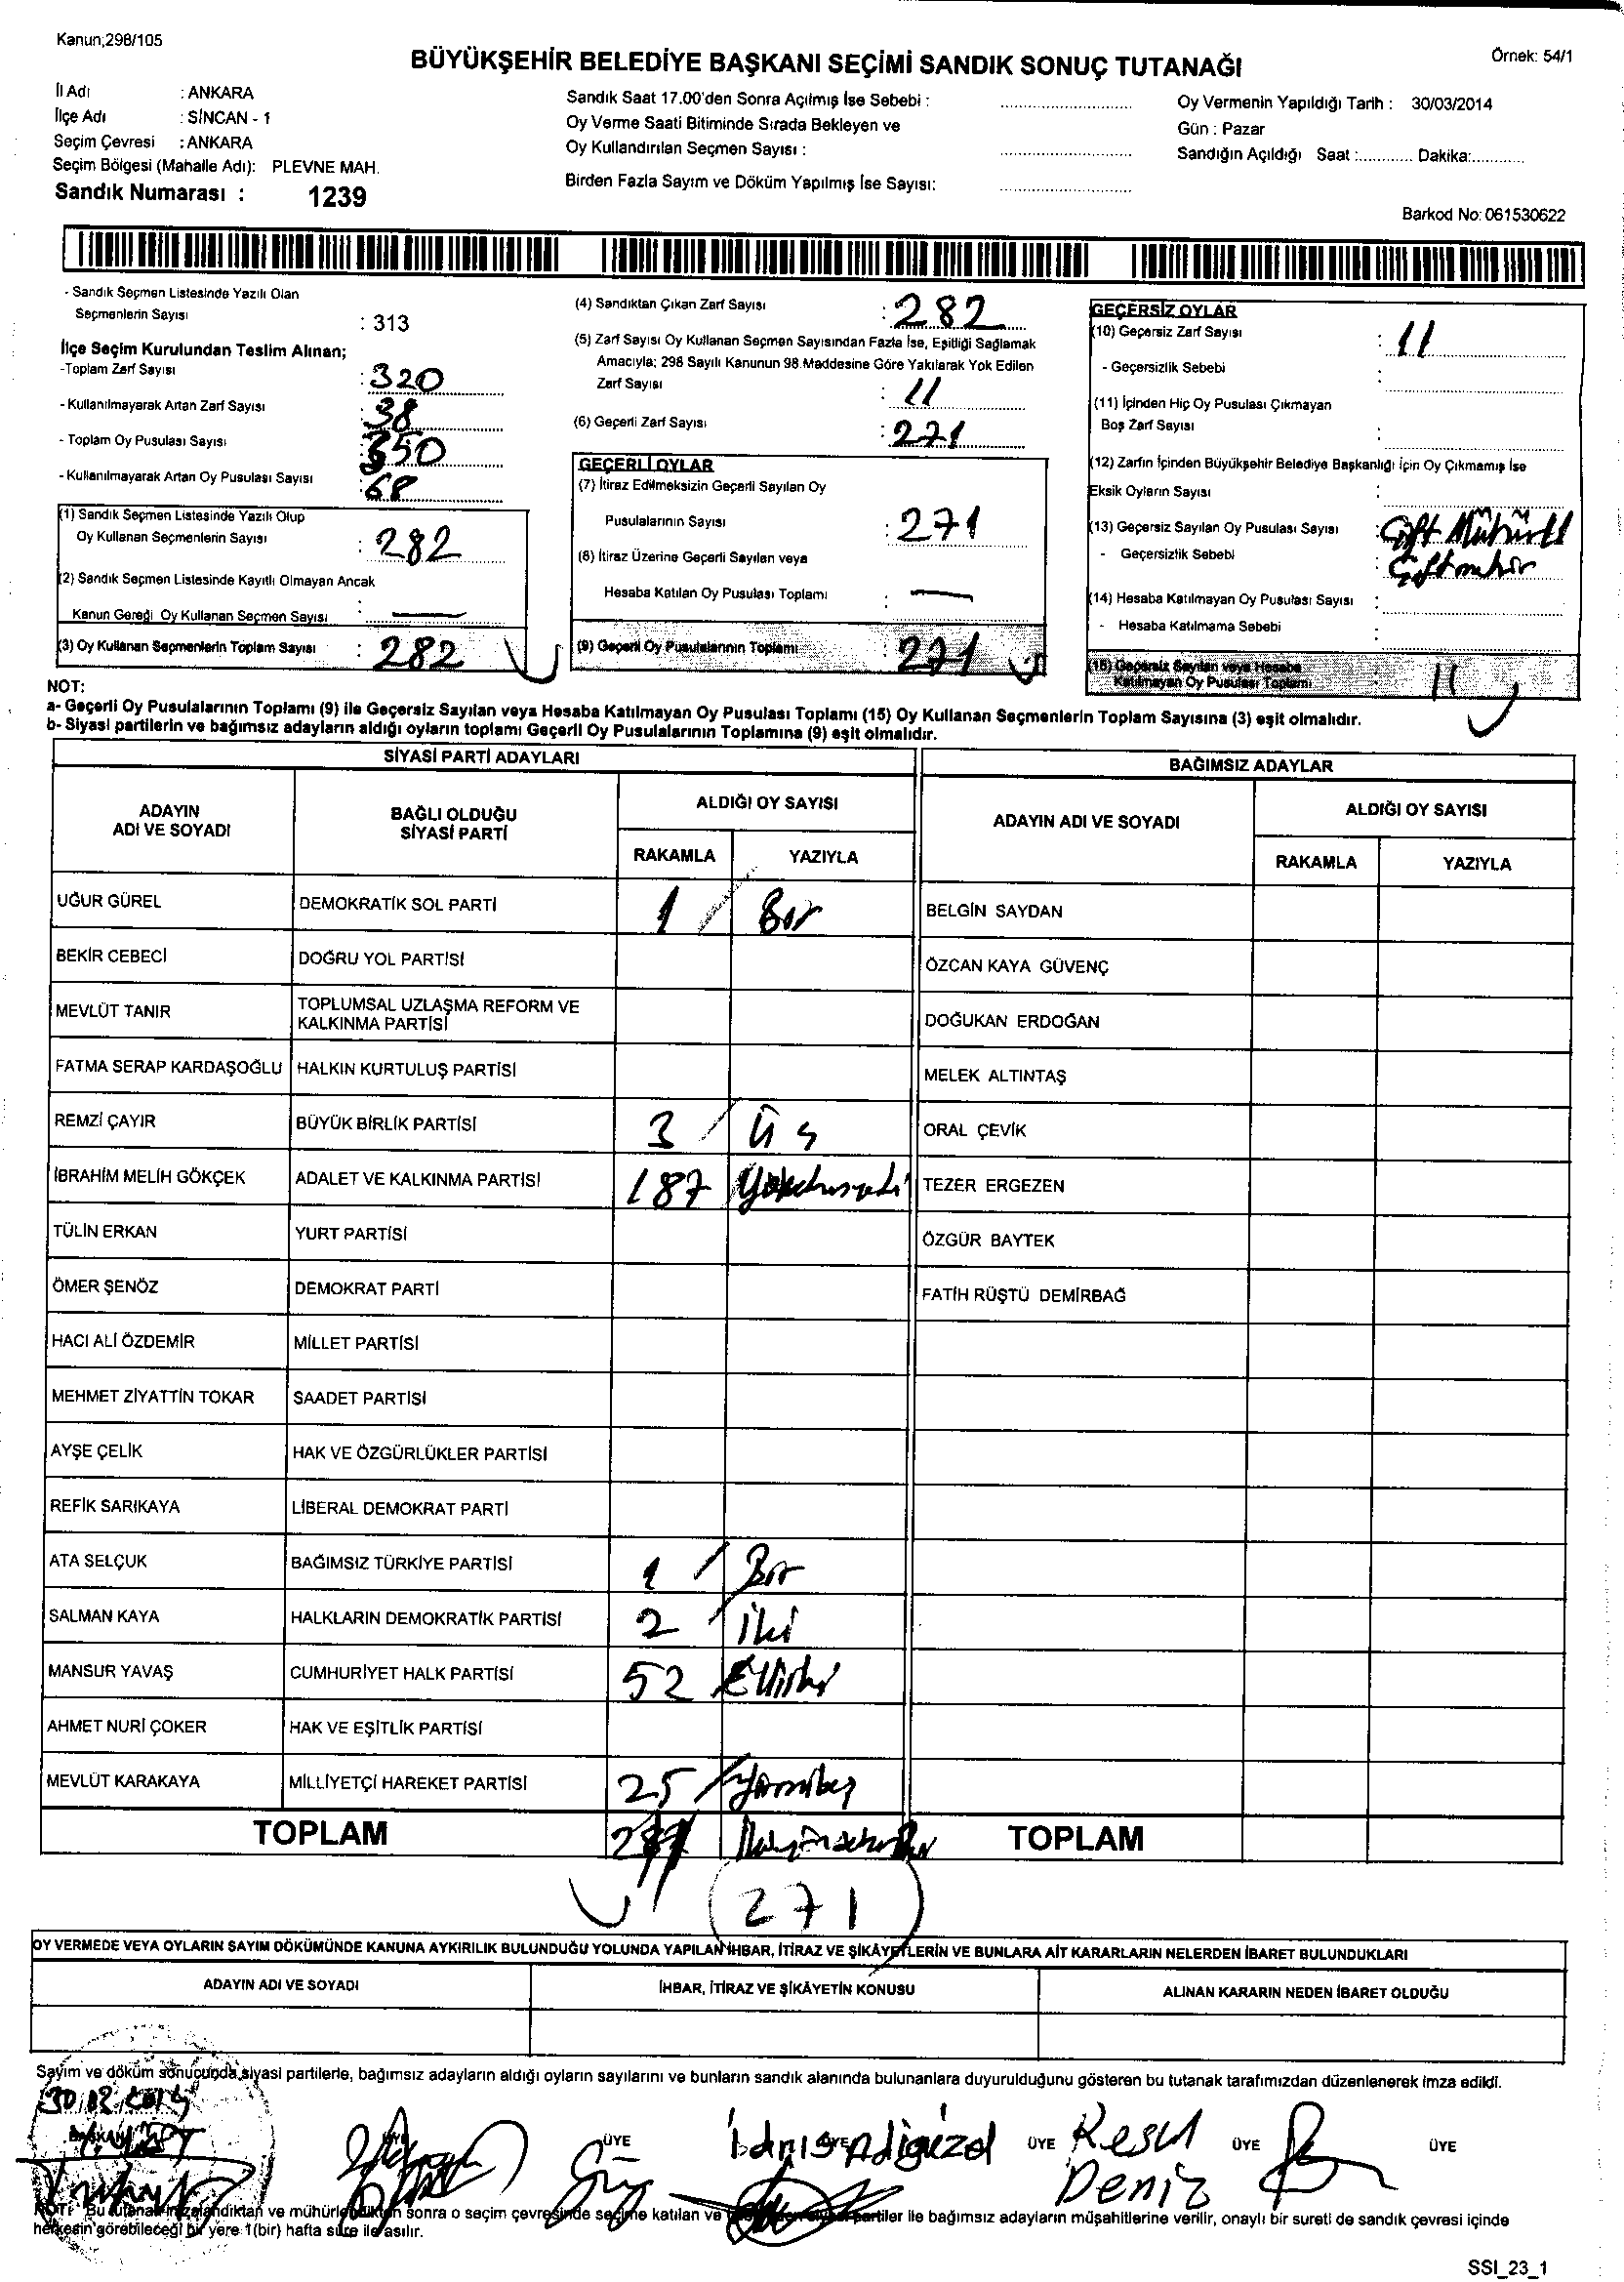 Kanun;298/105
BÜYÜKŞEHİR BELEDİYE BAŞKANI SEÇİMİ SANDIK SONUÇ TUTANAĞI
Örnek: 54/1
İl Adı : ANKARA
İlçe Adı : SİNCAN - 1
Seçim Çevresi : ANKARA
Seçim Bölgesi (Mahalle Adı): PLEVNE MAH.
Sandık Numarası : 1239
Sandık Saat 17.00'den Sonra Açılmış İse Sebebi :
Oy Verme Saati Bitiminde Sırada Bekleyen ve
Oy Kullandırılan Seçmen Sayısı :
Birden Fazla Sayım ve Döküm Yapılmış İse Sayısı:
Oy Vermenin Yapıldığı Tarih : 30/03/2014
Gün : Pazar
Sandığın Açıldığı Saat :............ Dakika:............
Barkod No: 061530622
- Sandık Seçmen Listesinde Yazılı Olan
Seçmenlerin Sayısı : 313
İlçe Seçim Kurulundan Teslim Alınan;
-Toplam Zarf Sayısı : 320
- Kullanılmayarak Artan Zarf Sayısı : 38
- Toplam Oy Pusulası Sayısı : 350
- Kullanılmayarak Artan Oy Pusulası Sayısı : 68
(1) Sandık Seçmen Listesinde Yazılı Olup
Oy Kullanan Seçmenlerin Sayısı : 282
(2) Sandık Seçmen Listesinde Kayıtlı Olmayan Ancak
Kanun Gereği Oy Kullanan Seçmen Sayısı : —
(3) Oy Kullanan Seçmenlerin Toplam Sayısı : 282
(4) Sandıktan Çıkan Zarf Sayısı : 282
(5) Zarf Sayısı Oy Kullanan Seçmen Sayısından Fazla İse, Eşitliği Sağlamak
Amacıyla; 298 Sayılı Kanunun 98.Maddesine Göre Yakılarak Yok Edilen
Zarf Sayısı : 11
(6) Geçerli Zarf Sayısı : 271
GEÇERLİ OYLAR
(7) İtiraz Edilmeksizin Geçerli Sayılan Oy
Pusulalarının Sayısı : 271
(8) İtiraz Üzerine Geçerli Sayılan veya
Hesaba Katılan Oy Pusulası Toplamı : —
(9) Geçerli Oy Pusulalarının Toplamı : 271
GEÇERSİZ OYLAR
(10) Geçersiz Zarf Sayısı : 11
- Geçersizlik Sebebi :
(11) İçinden Hiç Oy Pusulası Çıkmayan
Boş Zarf Sayısı :
(12) Zarfın İçinden Büyükşehir Belediye Başkanlığı İçin Oy Çıkmamış İse
Eksik Oyların Sayısı :
(13) Geçersiz Sayılan Oy Pusulası Sayısı : Çift Mühürlü
- Geçersizlik Sebebi : Çift mühür
(14) Hesaba Katılmayan Oy Pusulası Sayısı :
- Hesaba Katılmama Sebebi :
(15) Geçersiz Sayılan veya Hesaba
Katılmayan Oy Pusulası Toplamı : 11
NOT:
a- Geçerli Oy Pusulalarının Toplamı (9) ile Geçersiz Sayılan veya Hesaba Katılmayan Oy Pusulası Toplamı (15) Oy Kullanan Seçmenlerin Toplam Sayısına (3) eşit olmalıdır.
b- Siyasi partilerin ve bağımsız adayların aldığı oyların toplamı Geçerli Oy Pusulalarının Toplamına (9) eşit olmalıdır.
SİYASİ PARTİ ADAYLARI
ADAYIN ADI VE SOYADI
BAĞLI OLDUĞU SİYASİ PARTİ
ALDIĞI OY SAYISI
RAKAMLA YAZIYLA
UĞUR GÜREL DEMOKRATİK SOL PARTİ 1 / Bir
BEKİR CEBECİ DOĞRU YOL PARTİSİ
MEVLÜT TANIR TOPLUMSAL UZLAŞMA REFORM VE KALKINMA PARTİSİ
FATMA SERAP KARDAŞOĞLU HALKIN KURTULUŞ PARTİSİ
REMZİ ÇAYIR BÜYÜK BİRLİK PARTİSİ 3 / Üç
İBRAHİM MELİH GÖKÇEK ADALET VE KALKINMA PARTİSİ 187
TÜLİN ERKAN YURT PARTİSİ
ÖMER ŞENÖZ DEMOKRAT PARTİ
HACI ALİ ÖZDEMİR MİLLET PARTİSİ
MEHMET ZİYATTİN TOKAR SAADET PARTİSİ
AYŞE ÇELİK HAK VE ÖZGÜRLÜKLER PARTİSİ
REFİK SARIKAYA LİBERAL DEMOKRAT PARTİ
ATA SELÇUK BAĞIMSIZ TÜRKİYE PARTİSİ 1 / Bir
SALMAN KAYA HALKLARIN DEMOKRATİK PARTİSİ 2 / İki
MANSUR YAVAŞ CUMHURİYET HALK PARTİSİ 52 Elliiki
AHMET NURİ ÇOKER HAK VE EŞİTLİK PARTİSİ
MEVLÜT KARAKAYA MİLLİYETÇİ HAREKET PARTİSİ 25 / Yirmibeş
TOPLAM
271
BAĞIMSIZ ADAYLAR
ADAYIN ADI VE SOYADI
ALDIĞI OY SAYISI
RAKAMLA YAZIYLA
BELGİN SAYDAN
ÖZCAN KAYA GÜVENÇ
DOĞUKAN ERDOĞAN
MELEK ALTINTAŞ
ORAL ÇEVİK
TEZER ERGEZEN
ÖZGÜR BAYTEK
FATİH RÜŞTÜ DEMİRBAĞ
TOPLAM
OY VERMEDE VEYA OYLARIN SAYIM DÖKÜMÜNDE KANUNA AYKIRILIK BULUNDUĞU YOLUNDA YAPILAN İHBAR, İTİRAZ VE ŞİKÂYETLERİN VE BUNLARA AİT KARARLARIN NELERDEN İBARET BULUNDUKLARI
ADAYIN ADI VE SOYADI İHBAR, İTİRAZ VE ŞİKÂYETİN KONUSU ALINAN KARARIN NEDEN İBARET OLDUĞU
Sayım ve döküm sonucunda siyasi partilerle, bağımsız adayların aldığı oyların sayılarını ve bunların sandık alanında bulunanlara duyurulduğunu gösteren bu tutanak tarafımızdan düzenlenerek imza edildi.
BAŞKAN ÜYE ÜYE ÜYE ÜYE ÜYE
Resul
Deniz
NOT: Bu tutanak imzalandıktan ve mühürlendikten sonra o seçim çevresinde seçime katılan ve partiler ile bağımsız adayların müşahitlerine verilir, onaylı bir sureti de sandık çevresi içinde
herkesin görebileceği bir yere 1(bir) hafta süre ile asılır.
SSI_23_1